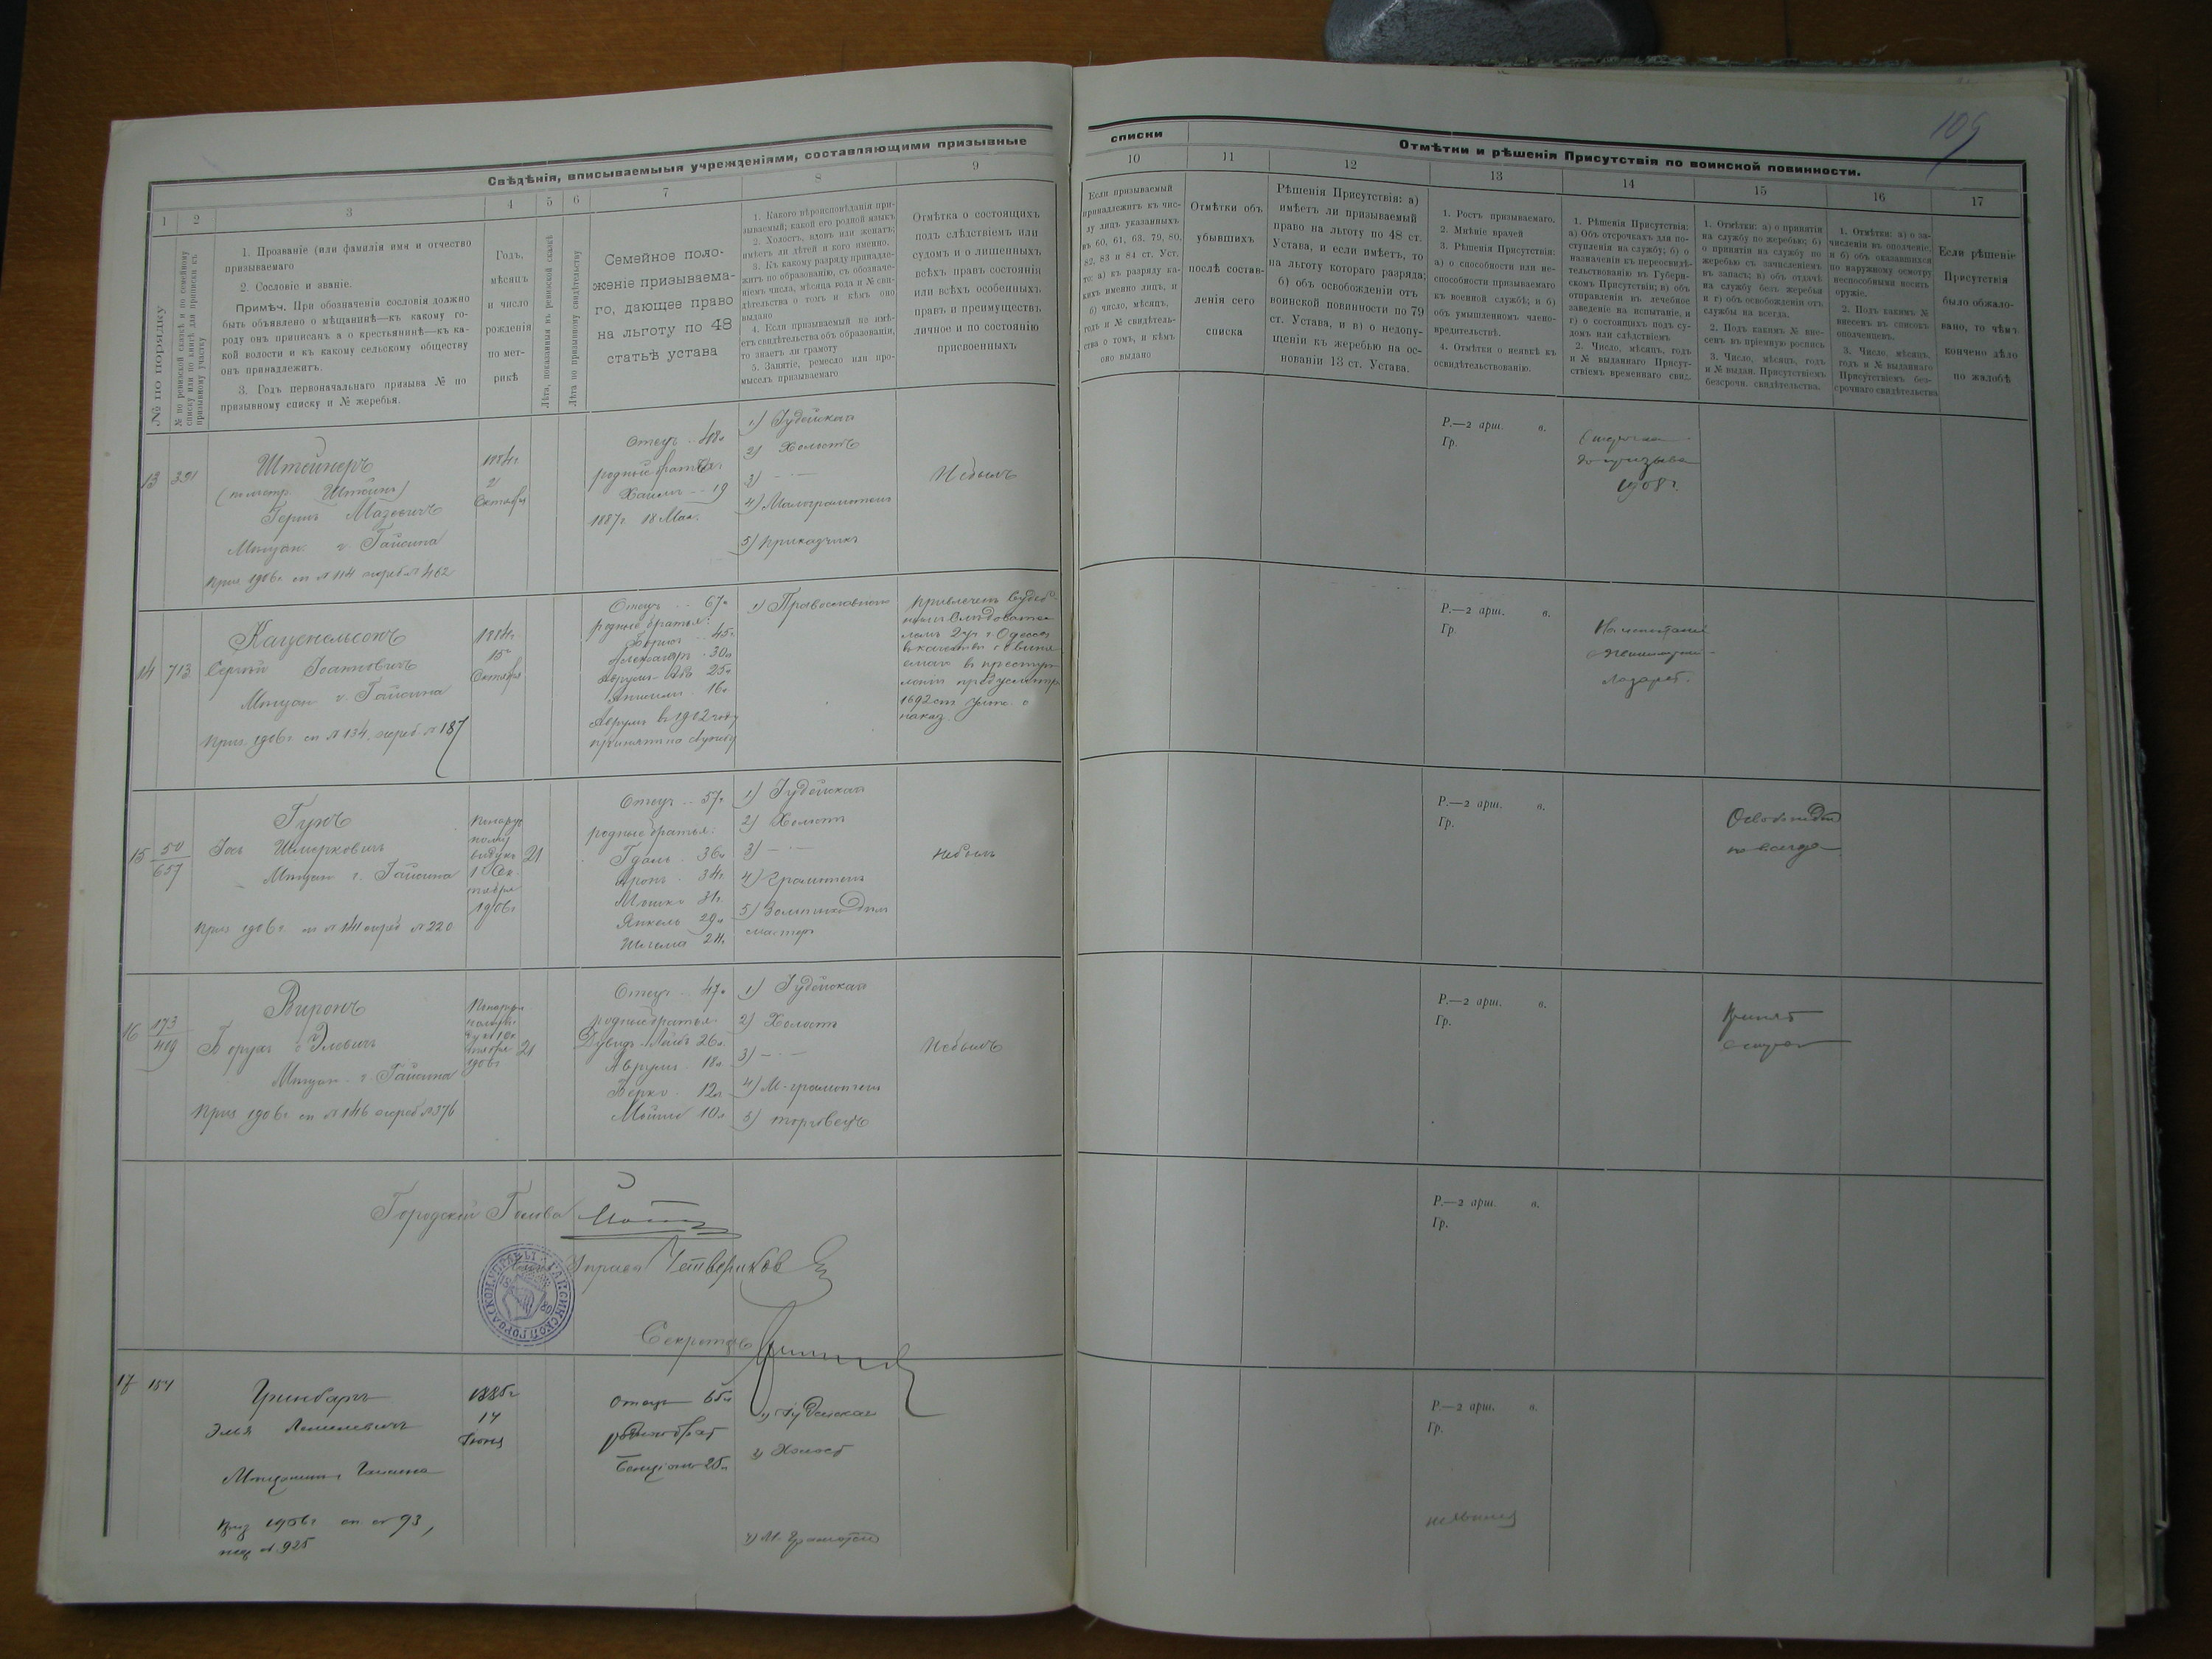 109
Свѣдѣнія, вписываемыя учрежденіями, составляющими призывные
списки
Отмѣтки и рѣшенія Присутствія по воинской повинности.
1 2 3 4 5 6 7 8 9
10 11 12 13 14 15 16 17
№ по порядку
№ по ревизской сказкѣ и по семейному
списку или по книгѣ для приписки къ
призывному участку
1. Прозваніе (или фамилія имя и отчество
призываемаго
2. Сословіе и званіе.
Примѣч. При обозначеніи сословія должно
быть объявлено о мѣщанинѣ—къ какому го-
роду онъ приписанъ а о крестьянинѣ—къ ка-
кой волости и къ какому сельскому обществу
онъ принадлежитъ.
3. Годъ первоначальнаго призыва № по
призывному списку и № жеребья.
Годъ,
мѣсяцъ
и число
рожденія
по мет-
рикѣ
Лѣта, показанныя въ ревизской сказкѣ
Лѣта по призывному свидѣтельству
Семейное поло-
женіе призываема-
го, дающее право
на льготу по 48
статьѣ устава
1. Какого вѣроисповѣданія при-
зываемый; какой его родной языкъ
2. Холостъ, вдовъ или женатъ;
имѣетъ ли дѣтей и кого именно.
3. Къ какому разряду принадле-
житъ по образованію, съ обозначе-
ніемъ числа, мѣсяца года и № сви-
дѣтельства о томъ и кѣмъ оно
выдано
4. Если призываемый не имѣ-
етъ свидѣтельства объ образованіи,
то знаетъ ли грамоту
5. Занятіе, ремесло или про-
мыселъ призываемаго
Отмѣтка о состоящихъ
подъ слѣдствіемъ или
судомъ и о лишенныхъ
всѣхъ правъ состоянія
или всѣхъ особенныхъ
правъ и преимуществъ
личное и по состоянію
присвоенныхъ
Если призываемый
принадлежитъ къ чис-
лу лицъ указанныхъ
въ 60, 61, 63, 79, 80,
82, 83 и 84 ст. Уст.
то: а) къ разряду ка-
кихъ именно лицъ, и
б) число, мѣсяцъ,
годъ и № свидѣтель-
ства о томъ, и кѣмъ
оно выдано
Отмѣтки объ
убывшихъ
послѣ состав-
ленія сего
списка
Рѣшенія Присутствія: а)
имѣетъ ли призываемый
право на льготу по 48 ст.
Устава, и если имѣетъ, то
на льготу котораго разряда;
б) объ освобожденіи отъ
воинской повинности по 79
ст. Устава, и в) о недопу-
щеніи къ жеребью на ос-
нованіи 13 ст. Устава.
1. Ростъ призываемаго.
2. Мнѣніе врачей
3. Рѣшенія Присутствія:
а) о способности или не-
способности призываемаго
къ военной службѣ; и б)
объ умышленномъ члено-
вредительствѣ.
4. Отмѣтки о неявкѣ къ
освидѣтельствованію.
1. Рѣшенія Присутствія:
а) Объ отсрочкахъ для по-
ступленія на службу; б) о
назначеніи къ переосвидѣ-
тельствованію въ Губерн-
скомъ Присутствіи; в) объ
отправленіи въ лечебное
заведеніе на испытаніе, и
г) о состоящихъ подъ су-
домъ или слѣдствіемъ
2. Число, мѣсяцъ, годъ
и № выданнаго Присут-
ствіемъ временнаго свид.
1. Отмѣтки: а) о принятіи
на службу по жеребью; б)
о принятіи на службу по
жеребью съ зачисленіемъ
въ запасъ; в) объ отдачѣ
на службу безъ жеребья
и г) объ освобожденіи отъ
службы на всегда.
2. Подъ какимъ № вне-
сенъ въ пріемную роспись
3. Число, мѣсяцъ, годъ
и № выдан. Присутствіемъ
безсрочн. свидѣтельства.
1. Отмѣтки: а) о за-
численіи въ ополченіе,
и б) объ оказавшихся
по наружному осмотру
неспособными носить
оружіе.
2. Подъ какимъ №
внесенъ въ списокъ
ополченцевъ.
3. Число, мѣсяцъ,
годъ и № выданнаго
Присутствіемъ без-
срочнаго свидѣтельства
Если рѣшеніе
Присутствія
было обжало-
вано, то чѣмъ
кончено дѣло
по жалобѣ
13 391
Штейнеръ
(по метр. Штейнъ)
Мѣщан. г. Гайсина
Приз 1906г сп №114 жереб № 462
1884г
2
Октября
Отецъ 48л
родные братья
Хаимъ 19
1887г. 18 Мая.
1) Іудейская
2) Холостъ
3) —
4) Малограмотенъ
5) Приказчикъ
Небылъ
Р.—2 арш. в.
Гр.
до призыва
1908г.
14 713
Каценельсонъ
Сергѣй
Мѣщан г. Гайсина
Приз. 1906г. сп №134, жереб №187
1884г.
15
Октября
Отецъ 67л
родные братья:
45л
Александръ 30л
25л
16л
Аврумъ въ 1902 году
принятъ на службу
1) Православнаго
Привлеченъ Судеб-
нымъ Слѣдовате-
лемъ 2 уч. г. Одессы
въ качествѣ обвиня-
емаго въ преступ-
леніи предусмотр.
1692 ст. Улож. о
наказ.
Р.—2 арш. в.
Гр.
На испытаніе
лазарет.
15 50/657
Гукъ
Іось Шмерковичъ
Мѣщан г. Гайсина
Приз 1906г сп №141 жереб №220
По наруж-
ному
виду къ
1 Ок-
тября
1906г
21
Отецъ 57л
родные братья:
Гдаль 36л
Аронъ 34л
Мошко 31л
Янкель 29л
24л
1) Іудейская
2) Холостъ
3) —
4) Грамотенъ
мастеръ
Небылъ
Р.—2 арш. в.
Гр.
Освобожденъ
навсегда
16 173/419
Виронъ
Борухъ Элевичъ
Мѣщан. г. Гайсина
Приз 1906г сп №146 жереб №376
21
Отецъ 47л
родные братья
Дувидъ-Лейбъ 26л
Аврумъ 18л
Берко 12л
Мойше 10л
1) Іудейская
2) Холостъ
3) —
4) М-грамотенъ
5) торговецъ
Небылъ
Р.—2 арш. в.
Гр.
Принят
Городской Голова
Членъ Управы Четвериковъ
Секретарь
Р.—2 арш. в.
Гр.
17 154
Гринбаргъ
Эля
Мѣщанинъ Гайсина
Приз 1906г сп. №93,
жер №925
1885г
14
Іюня
Отецъ 65л
родной брат
Бенціонъ 25л
1) Іудейская
2) Холост
4) М. Грамотен
Р.—2 арш. в.
Гр.
неявился